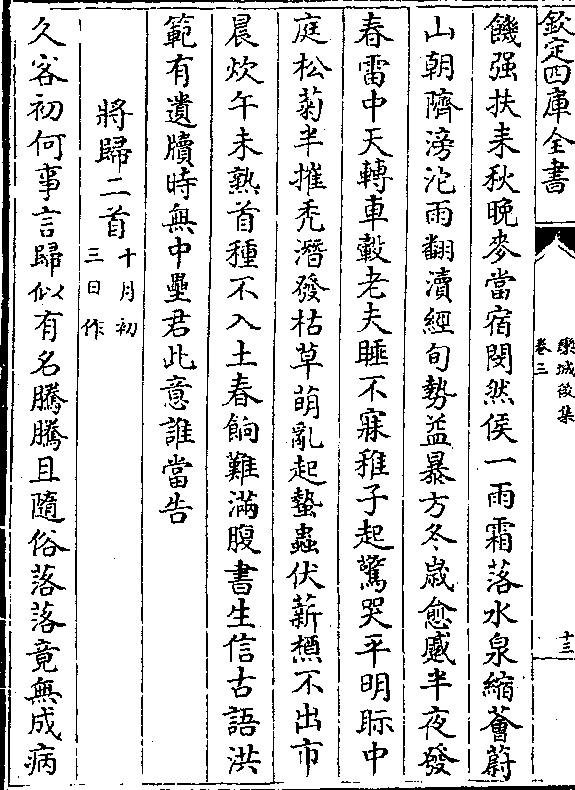 欽定四庫全書
欒城後集
卷三
十三
饑强扶耒秋晚麥當宿閔然俟一雨霜落水泉縮薈蔚
山朝隮滂沱雨翻瀆經旬勢益暴方冬歲愈蹙半夜發
春雷中天轉車轂老夫睡不寐稚子起驚哭平明眎中
庭松菊半摧禿潛發枯草萌亂起蟄蟲伏薪槱不出市
晨炊午未熟首種不入土春餉難滿腹書生信古語洪
範有遺牘時無中壘君此意誰當告
將歸二首
十月初
三日作
久客初何事言歸似有名騰騰且隨俗落落竟無成病